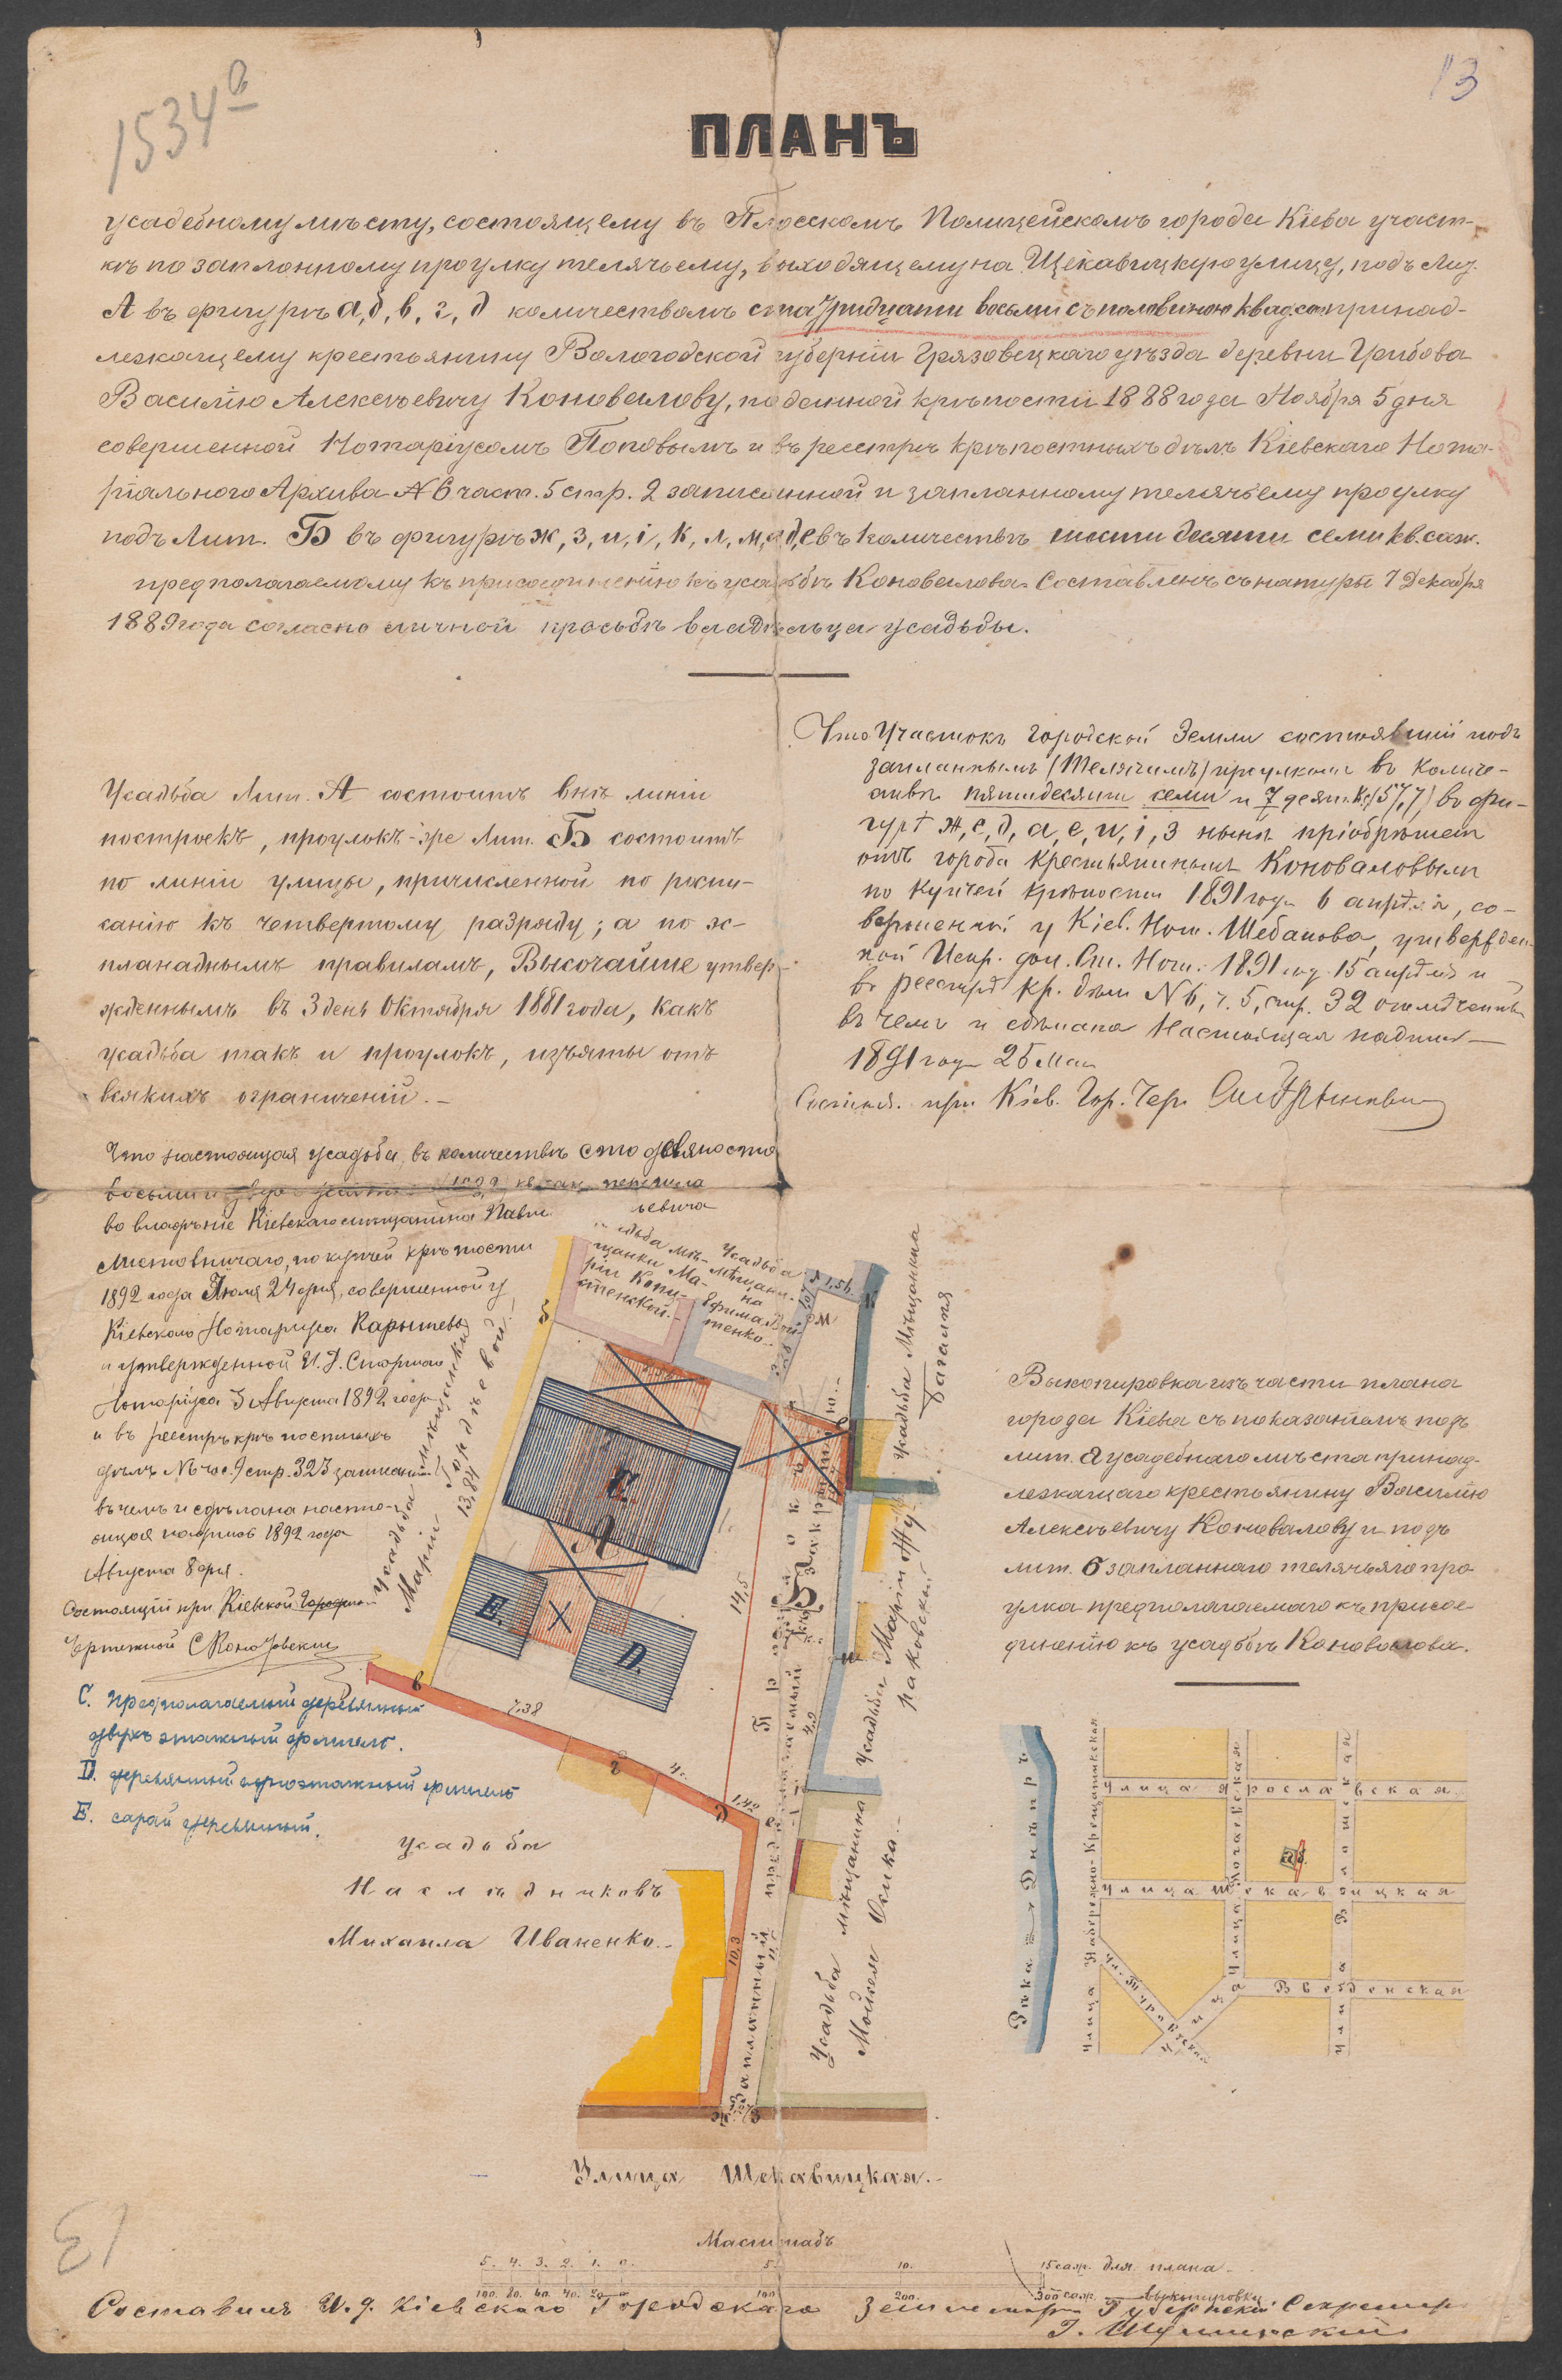 1534 а
13
ПЛАНЪ
усадебному мѣсту, состоящему въ Плосскомъ Полицейскомъ города Кіева участ-
кѣ по запланному проулку телячьему, выходящему на Щекавицкую улицу, подъ Лит.
А въ фигурѣ а, б, в, г, д количествомъ ста тридцати восьми съ половиною квад. саж. принад-
лежащему крестьянину Вологодской губерніи Грязовецкаго уѣзда деревни Грибова
Василію Алексѣевичу Коновалову, по данной крѣпости 1888 года Ноября 5 дня
совершенной Нотаріусомъ Поповымъ и въ реестрѣ крѣпостныхъ дѣлъ Кіевскаго Нота-
ріальнаго Архива № 6 част. 5 стр. 2 записанной и запланному телячьему проулку
подъ Лит. Б въ фигурѣ ж, з, и, і, к, л, м, а, д, е въ количествѣ шести десяти семи кв. саж.
предполагаемому къ присоединенію къ усадьбѣ Коновалова. Составленъ съ натуры 7 Декабря
1889 года согласно личной просьбѣ владѣльца усадьбы.
Что Участокъ Городской Земли состоявшій подъ
запланнымъ (Телячимъ) проулкомъ въ количе-
ствѣ пятидесяти семи и 7 десят. (57,7) въ фи-
гурѣ ж, е, д, а, е, и, і, з нынѣ пріобрѣтен
отъ города Крестьяниномъ Коноваловымъ
по купчей крѣпости 1891 года 6 апрѣля, со-
вершенной у Кіев. Нот. Шебанова, утвержден-
ной Испр. дол. Ст. Нот. 1891 год. 15 апрѣля и
въ реестрѣ кр. дѣлъ № 6, ч. 5, стр. 32 отмѣченный
въ чемъ и сдѣлана настоящая надпись
1891 года 25 Мая
Состоящ. при Кіев. Гор. Чер.
Усадьба Лит. А состоитъ внѣ линіи
построекъ, проулокъ-же Лит. Б состоитъ
по линіи улицы, причисленной по роспи-
санію къ четвертому разряду; а по эс-
планаднымъ правиламъ, Высочайше утвер-
жденнымъ въ 3 день Октября 1881 года, какъ
усадьба такъ и проулокъ, изъяты отъ
всякихъ ограниченій.-
Что настоящая усадьба, въ количествѣ сто девяносто
восьми и двух перешла
во владѣніе Кіевскаго мѣщанина Павла
ьевича
Листовничаго, по купчей крѣпости
1892 года Іюля 24 дня, совершенной у
Кіевскаго Нотаріуса Карышева
и утвержденной И. Д. Старшаго
Нотаріуса 3 Августа 1892 года
и въ реестрѣ крѣпостныхъ
дѣлъ № час. 9 стр. 323 записанной
въ чемъ и сдѣлана настоя-
ощая надпись 1892 года
Августа 8 дня.
Состоящій при Кіевской Городской
Чертежной
C. Предполагаемый деревянный
двухъ этажный флигель.
D. деревянный одноэтажный флигель
E. сарай деревянный.
Усадьба мѣ-
щанки Ма-
ріи Копы-
стенской.-
Усадьба
мѣщани-
на
Ефима Вой-
тенко.-
Усадьба мѣщанки
Маріи Гордѣевой
13,84
Усадьба Мѣщанина
Багалія
Усадьба Маріи Жу-
раковской
C.
A
E.
D.
Б
14,5
7,38
4,9
1,42
10,3
1,5
в
г
д
Проулокъ
Закрытый
Запланный
Усадьба
Наслѣдниковъ
Михаила Иваненко.-
Усадьба мѣщанина
Мойсея Осика.-
Улица Щекавицкая.-
Выкопировка изъ части плана
города Кіева съ показаніемъ подъ
лит. а усадебнаго мѣста принад-
лежащаго крестьянину Василію
Алексѣевичу Коновалову и подъ
лит. б запланнаго телячьяго про-
улка предполагаемаго къ присое-
диненію къ усадьбѣ Коновалова.
Рѣка Днѣпръ
Улица Набережно-Крещатикская
Улица Ярославская
Улица Почаевская
Улица Волошская
а б.
Улица Щекавицкая
Введенская
Масштабъ
5. 4. 3. 2. 1. 0. 5. 10. 15 саж. для плана
100. 80. 60. 40. 20 0 100 200. 300 саж. выкопировки
Составилъ И. д. Кіевскаго Городскаго Землемѣра Губернскій Секретарь
13